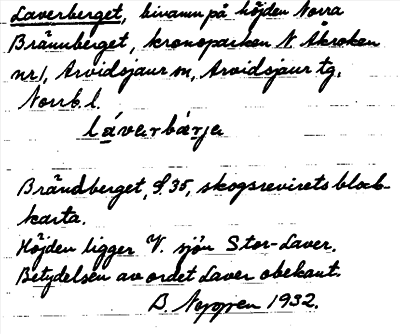 Laverberget, binamn på höjden Norra
Brännberget, kronoparken N Åkroken
nr 1, Arvidsjaur sn, Arvidsjaur tg,
Norrb. l.
láverbárje
Brändberget, S. 35, skogsrevirets block-
karta.
Höjden ligger V. sjön Stor-Laver.
Betydelsen av ordet Laver obekant.
1932.